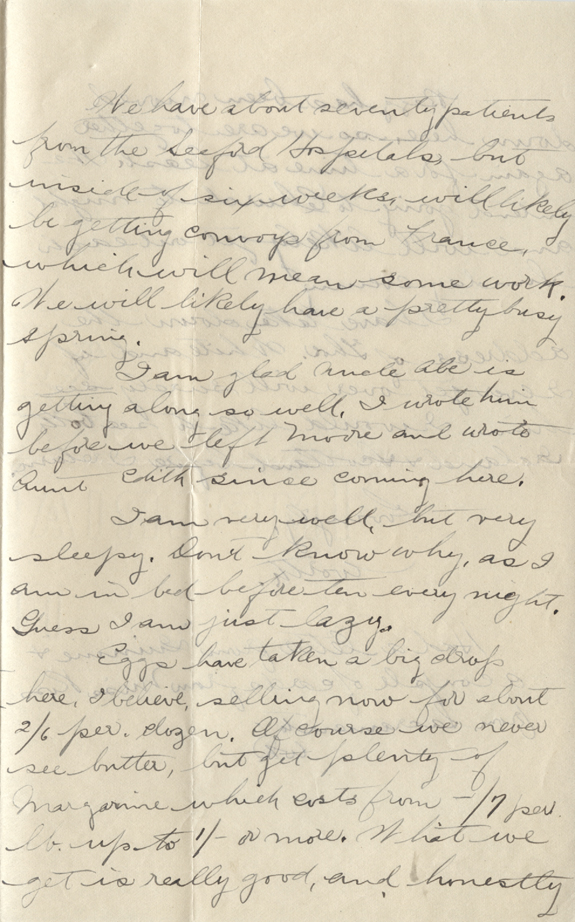 We have about seventy patients
from the Seaford Hospitals, but
inside of six weeks, will likely
be getting convoys from France,
which will mean some work.
We will likely have a pretty busy
spring.
I am glad uncle Abe is
getting along so well. I wrote him
before we left Moore and wrote
Aunt Edith since coming here.
I am very well, but very
sleepy. Don't know why, as I
am in bed before ten every night.
Guess I am just lazy.
Eggs have taken a big drop
here, I believe, selling now for about
2/6 per. dozen. Of course we never
see butter, but get plenty of
Margarine which costs from -/7 per.
lb. up to 1/- or more. What we
get is really good, and honestly